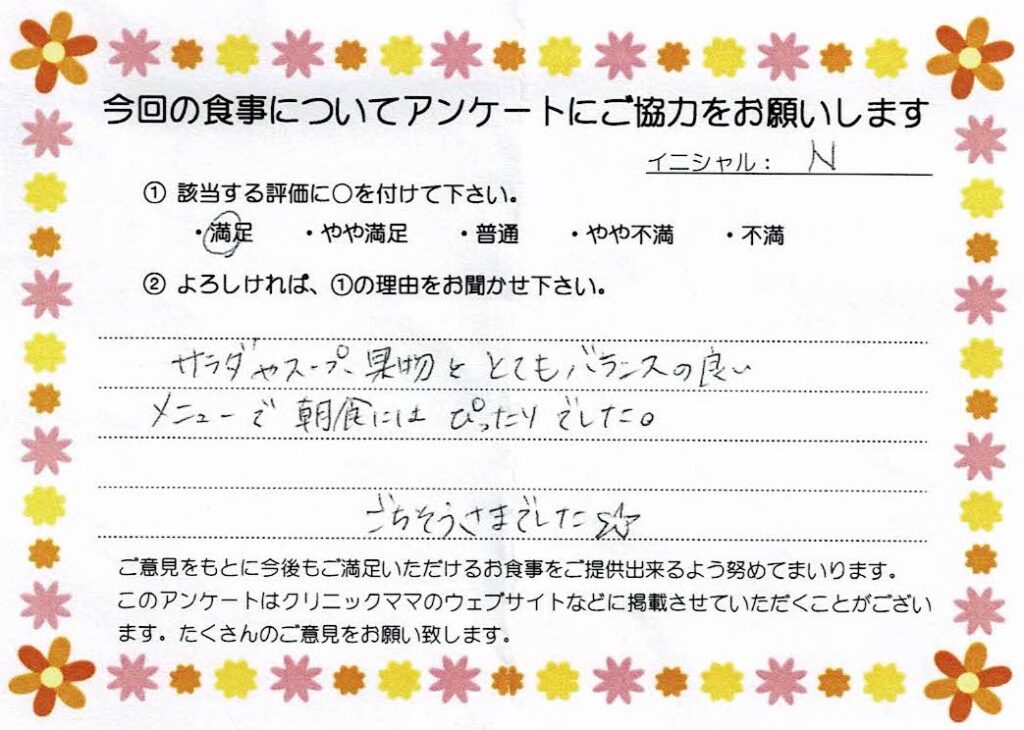 今回の食事についてアンケートにご協力をお願いします
イニシャル： N
① 該当する評価に○を付けて下さい。
・満足 ・やや満足 ・普通 ・やや不満 ・不満
② よろしければ、①の理由をお聞かせ下さい。
サラダやスープ、果物と とてもバランスの良い
メニューで 朝食には ぴったりでした。
ごちそうさまでした☆
ご意見をもとに今後もご満足いただけるお食事をご提供出来るよう努めてまいります。
このアンケートはクリニックママのウェブサイトなどに掲載させていただくことがござい
ます。たくさんのご意見をお願い致します。